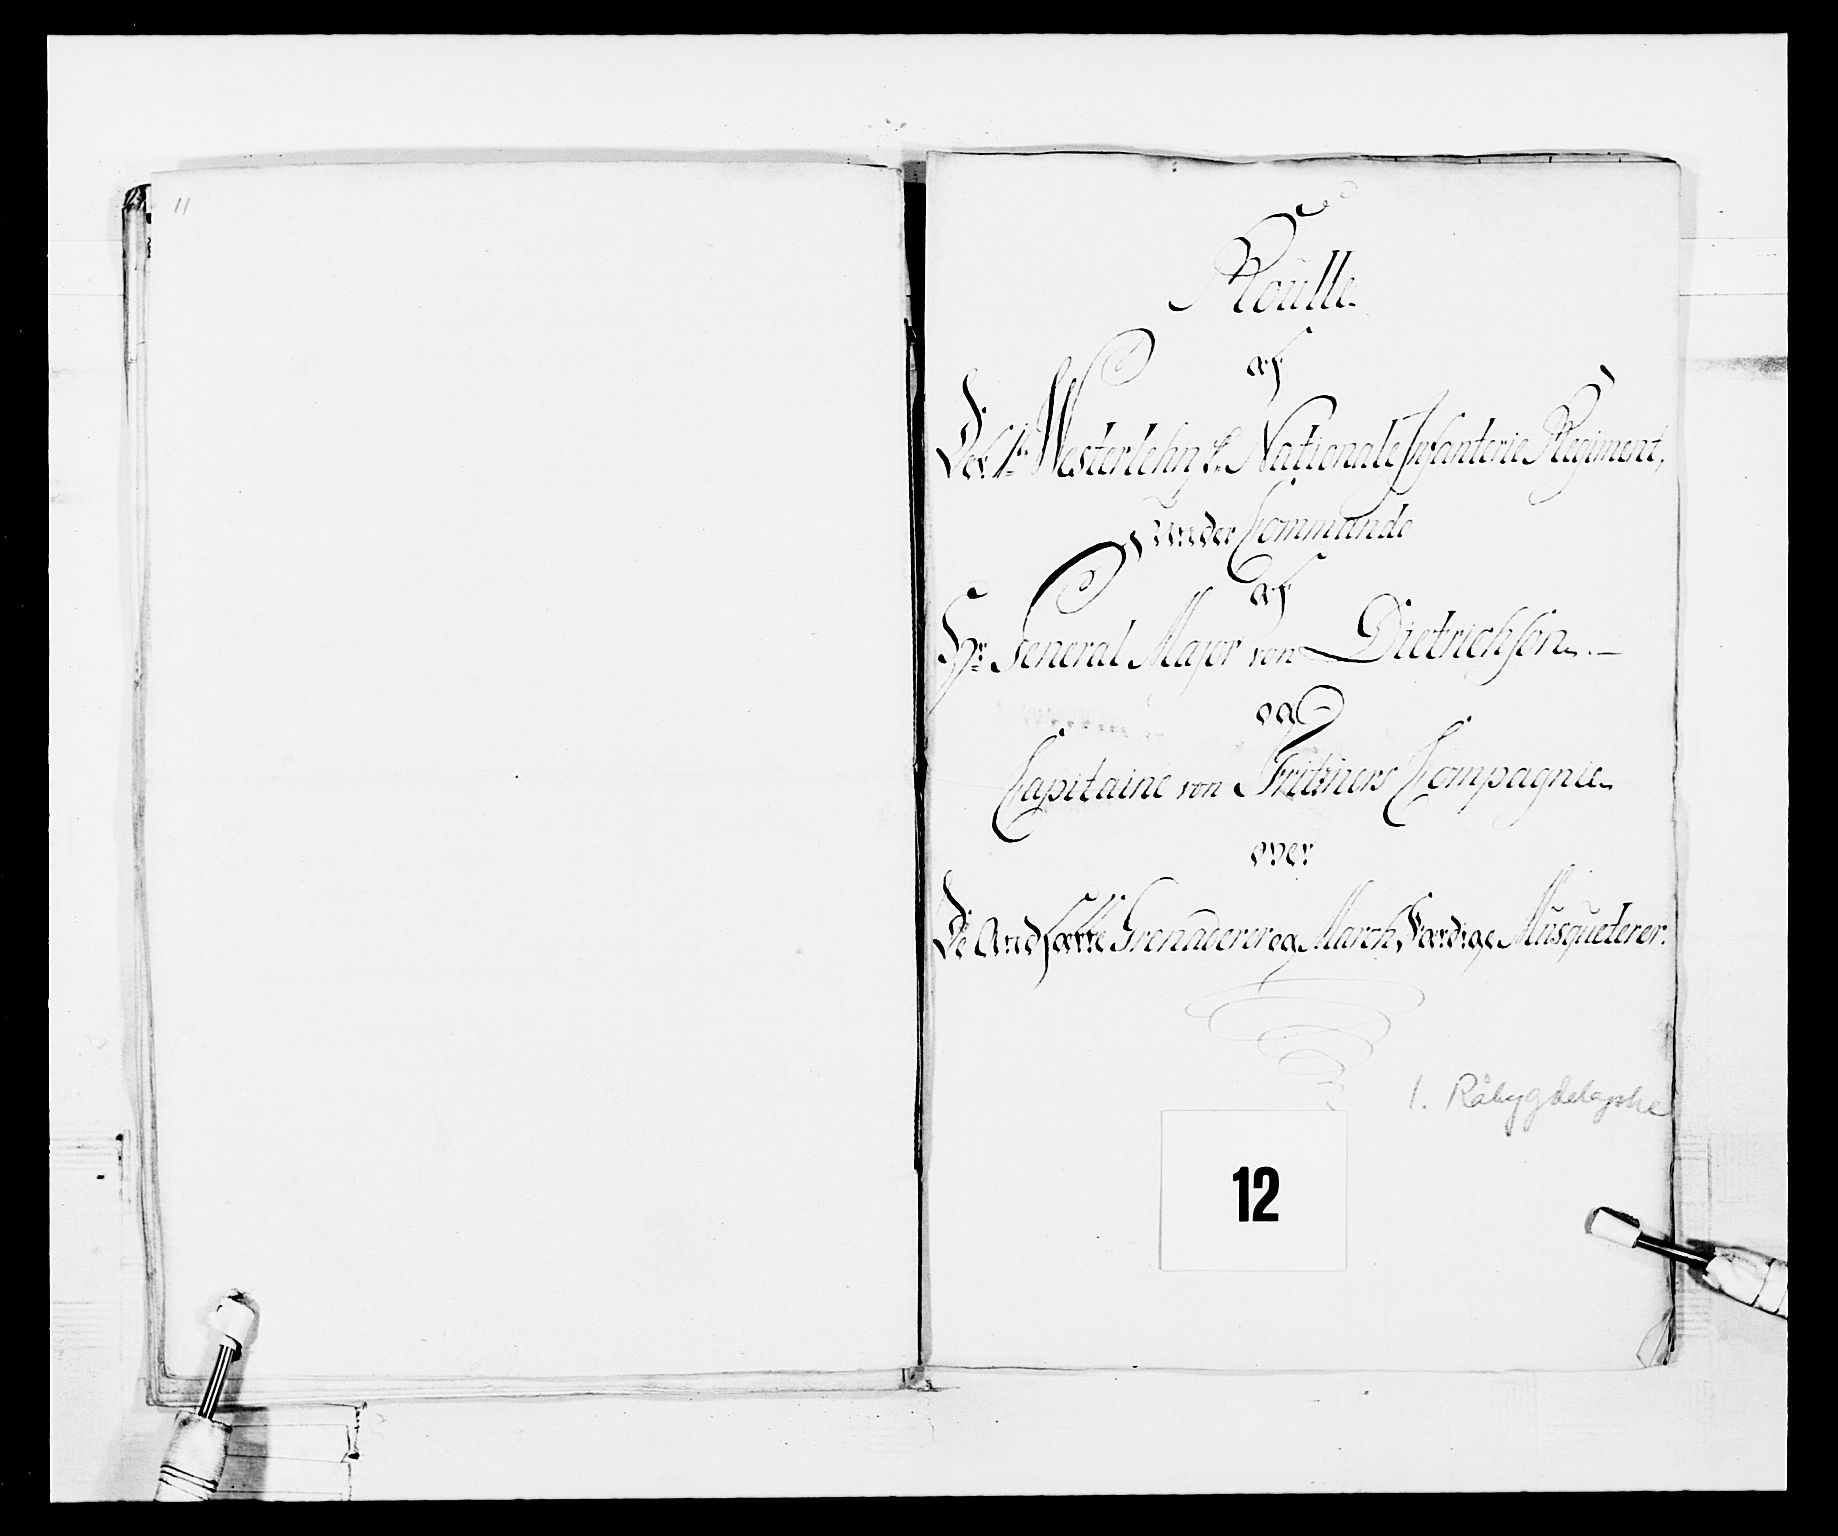 11
Roulle
af
Det 1ste Westerlehnske Nationale Infanterie Regiment,
under Commando
af
Hr. General Major von Dietrichson.
og
Capitaine von Fritzners Compagnie
over
De Andsatte Grenaderer og March, Færdige Musqueterer.
1. Råbygdelagske
12